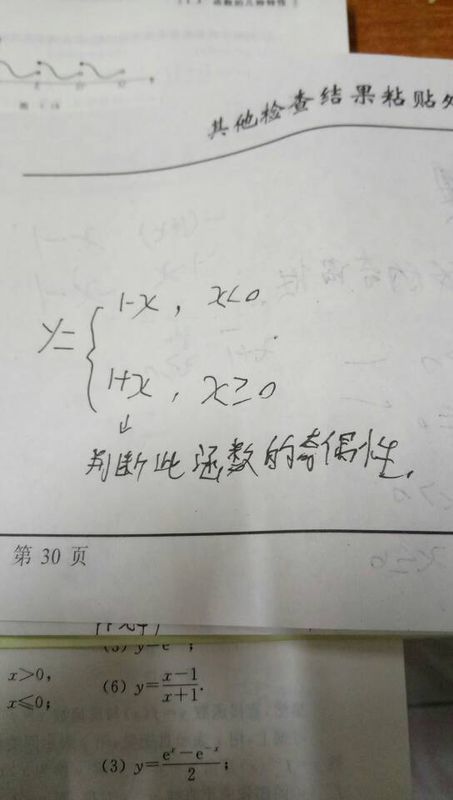 其他检查结果粘贴处
y= { 1-x , x<0
1+x , x≥0
↓
判断此函数的奇偶性.
第 30 页
x>0, (6) y=\frac{x-1}{x+1}.
x≤0;
(3) y=\frac{e^x-e^{-x}}{2};